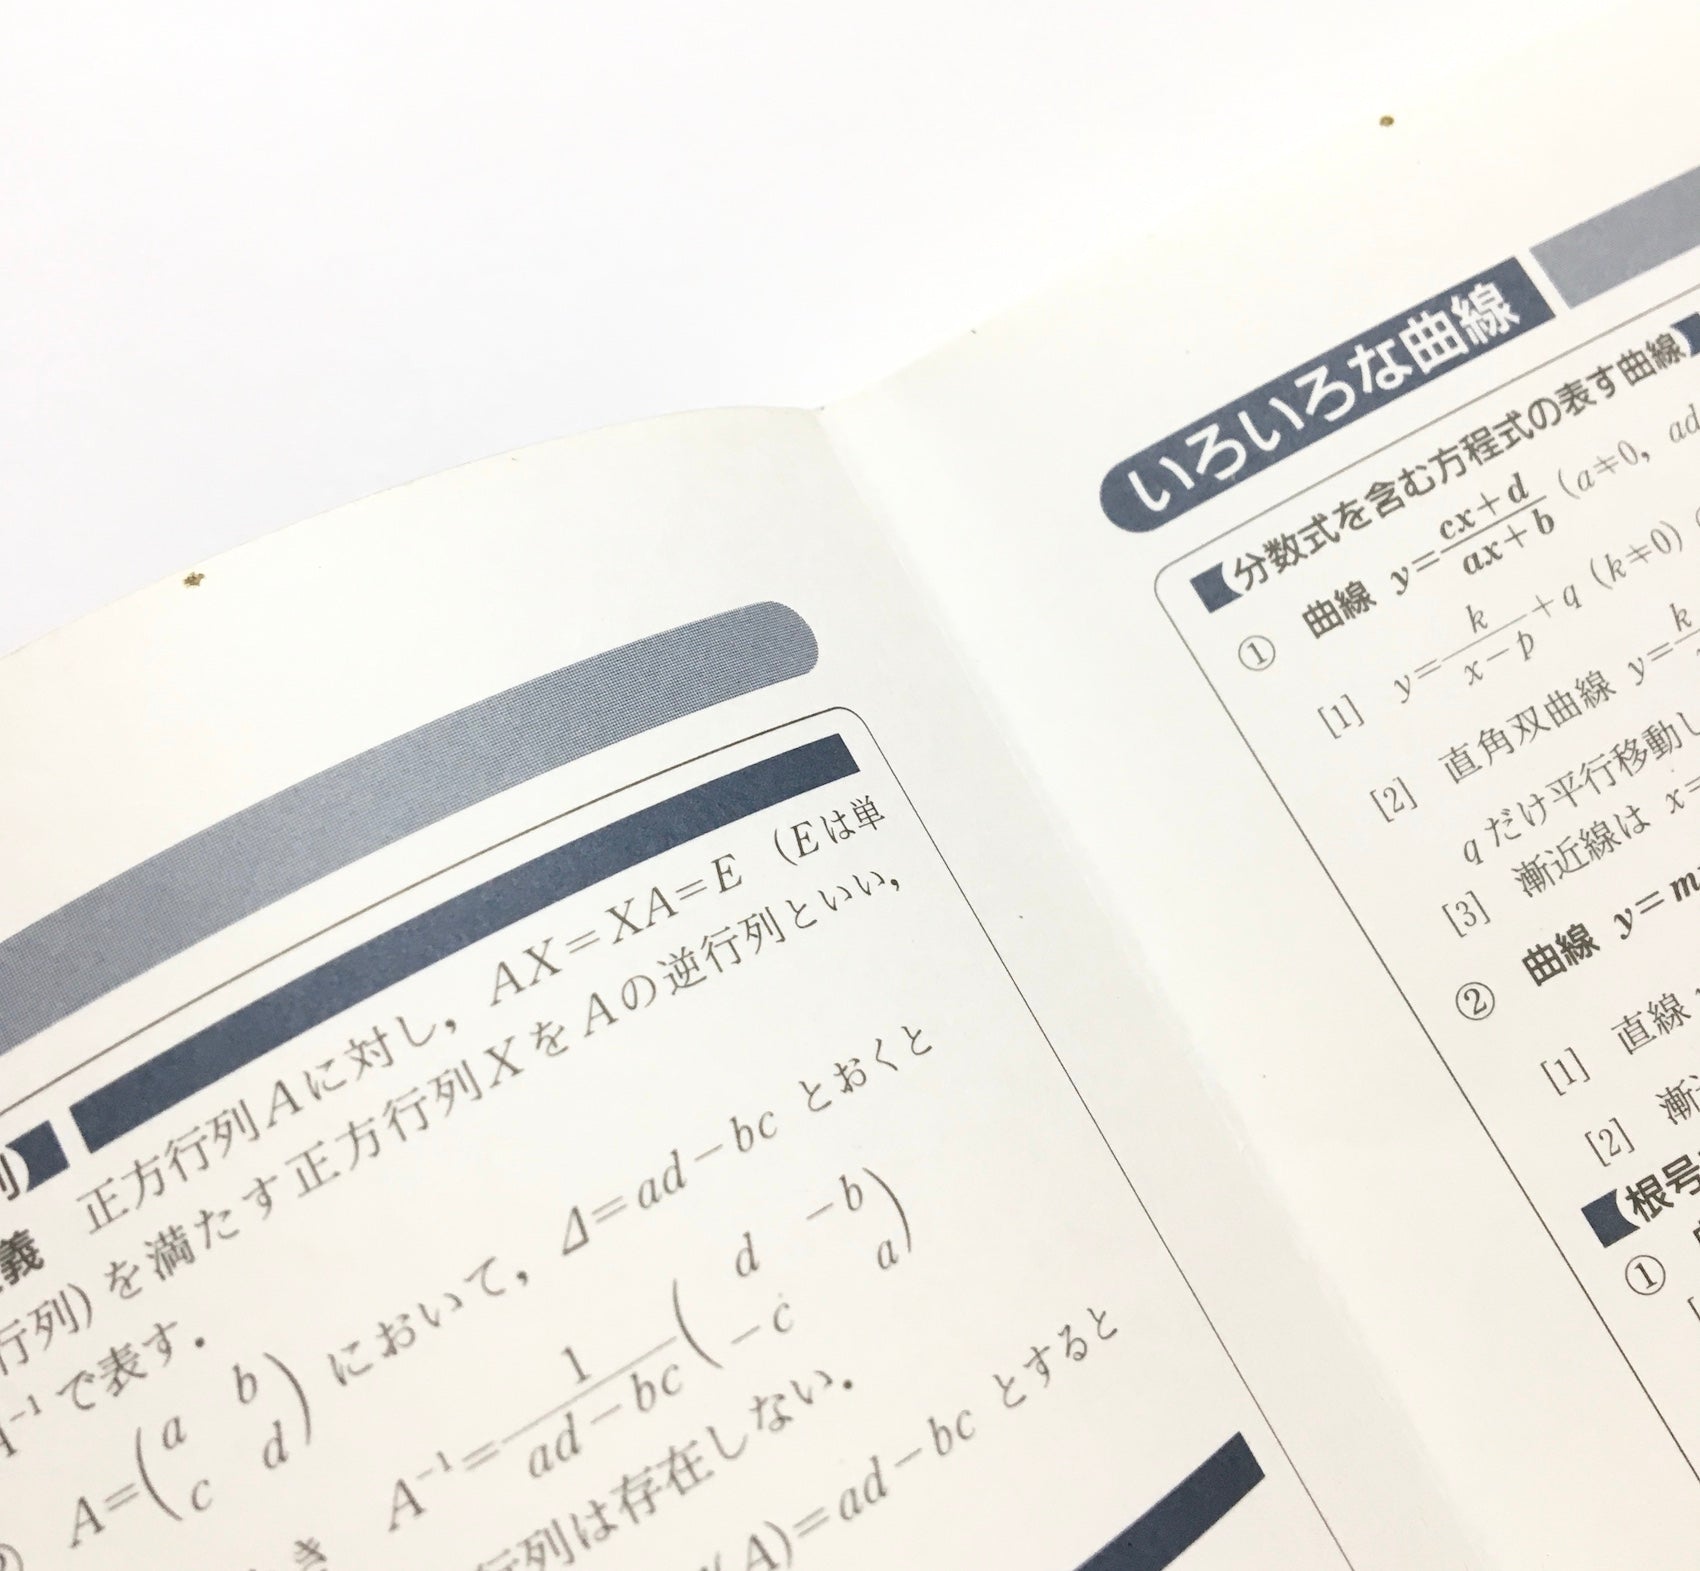 列)
義 正方行列Aに対し，AX=XA=E (Eは単
行列) を満たす正方行列XをAの逆行列といい，
A⁻¹ で表す．
② A=(a b
c d) において，Δ=ad-bc とおくと
き A⁻¹=1/(ad-bc)(d -b
-c a)
行列は存在しない．
(A)=ad-bc とすると
いろいろな曲線
(分数式を含む方程式の表す曲線)
① 曲線 y=(cx+d)/(ax+b) (a≠0, ad
[1] y=k/(x-p)+q (k≠0)
[2] 直角双曲線 y=k
qだけ平行移動し
[3] 漸近線は x=
② 曲線 y=m
[1] 直線
[2] 漸近
(根号
①